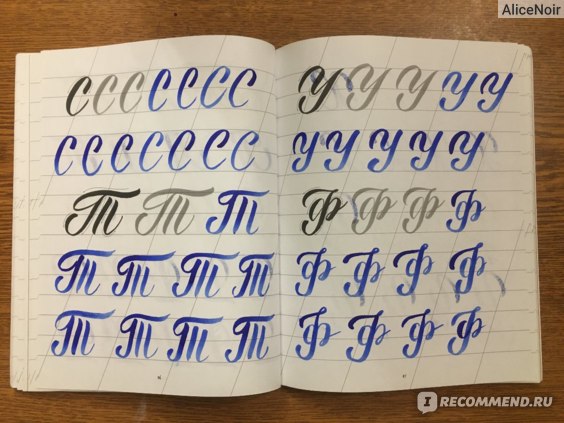 AliceNoir
С С С С С С С
С С С С С С С
Т Т Т
Т Т Т Т
Т Т Т Т
У У У У У
У У У У У
Ф Ф Ф Ф
Ф Ф Ф Ф
Ф Ф Ф Ф
I RECOMMEND.RU